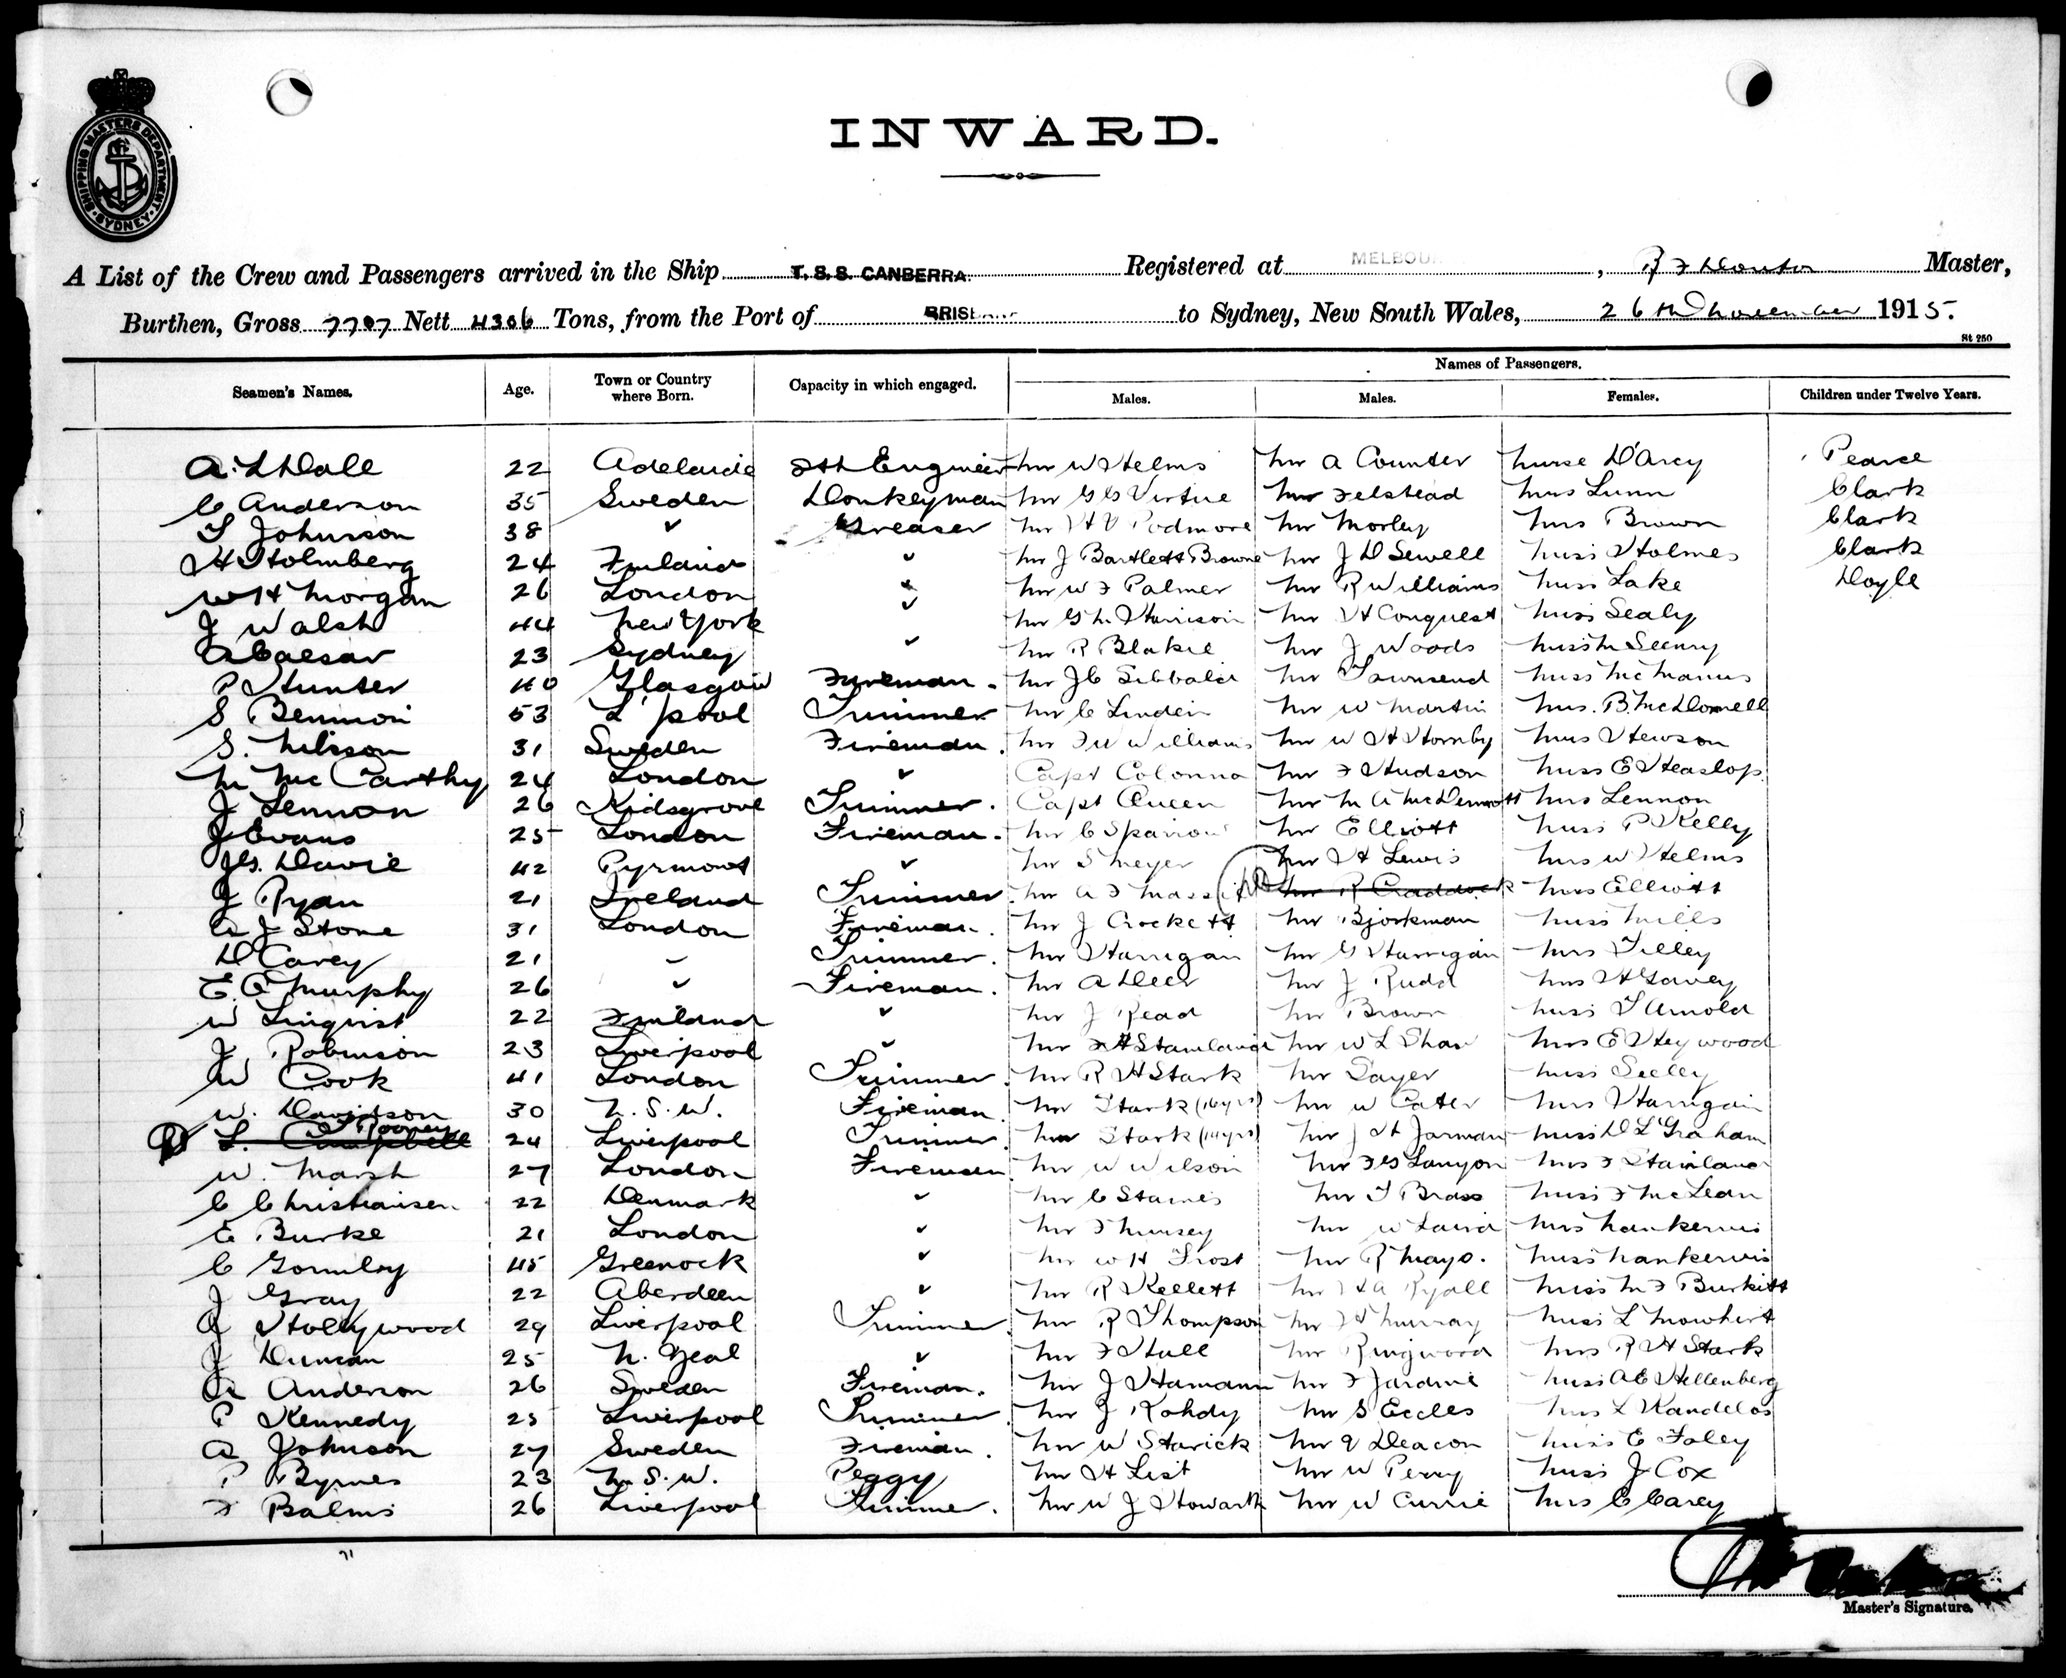 SHIPPING MASTERS DEPARTMENT. SYDNEY
INWARD.
A List of the Crew and Passengers arrived in the Ship T. S. S. CANBERRA. Registered at MELBOU , R F Master,
Burthen, Gross 7707 Nett 4306 Tons, from the Port of BRISBANE to Sydney, New South Wales, 26th November 1915.
St 250
Names of Passengers.
Seamen's Names. Age. Town or Country where Born. Capacity in which engaged. Males. Males. Females. Children under Twelve Years.
A. L Dale 22 Adelaide 8th Engineer Mr W Helms Mr A Counter Nurse D'Arcy Pearce
C Anderson 35 Sweden Donkeyman Mr G G Virtue Mr Felstead Mrs Lunn Clark
T Johnson 38 " Greaser Mr H V Podmore Mr Morley Mrs Brown Clark
H Holmberg 24 Finland " Mr J Bartlett Browne Mr J D Sewell Miss Holmes Clark
W H Morgan 26 London " Mr W F Palmer Mr R Williams Miss Lake Doyle
J Walsh 44 New York " Mr G Harrison Mr H Conquest Miss Sealy
A Caesar 23 Sydney " Mr R Blakie Mr J Woods Miss M
P Hunter 40 Glasgow Fireman. Mr J C Sibbald Mr Townsend Miss McManus
S 53 L'pool Trimmer Mr C Linden Mr W Martin Mrs. B. McDonnell
S. Nilsson 31 Sweden Fireman. Mr F W Williams Mr W H Hornby Mrs Hewson
M McCarthy 24 London " Capt Colonna Mr F Hudson Miss E Heaslop.
J Lennon 26 Kidsgrove Trimmer. Capt Queen Mr M A McDermott Mrs Lennon
J Evans 25 London Fireman. Mr C Sparrow Mr Elliott Miss P Kelly
Js. Davie 42 Pyrmont " Mr S Meyer Mr H Lewis Mrs W Helms
J Ryan 21 Ireland Trimmer Mr A F Mr R Craddock Mrs Elliott
A J Stone 31 London Fireman. Mr J Crockett Mr Bjorkman Miss Mills
D Carey 21 " Trimmer. Mr Harrigan Mr G Harrigan Mrs Tilley
E. A Murphy 26 " Fireman. Mr A Deer Mr J Rudd Mrs H Gavey
W Linqvist 22 Finland " Mr J Read Mr Brown Miss T Arnold
J Robinson 23 Liverpool " Mr F H Stainland Mr W L Shaw Mrs E Heywood
W Cook 41 London Trimmer. Mr R H Stark Mr Sayer Miss Seeley
W. Davidson 30 N. S. W. Fireman Mr Stark (16yrs) Mr W Cater Mrs Harrigan
T Rooney
L. Campbell 24 Liverpool Trimmer Mr Stark (14yrs) Mr J H Jarman Miss D L Graham
W. Marsh 27 London Fireman Mr W Wilson Mr F G Lanyon Mrs F Stainland
C Christiansen. 22 Denmark " Mr C Staines Mr T Brass Miss F McLean
E Burke 21 London " Mr F Mr W Laird Mrs Nankervis
C Gormley 45 Greenock " Mr W H Frost Mr R Mayo. Miss Nankervis
J Gray 22 Aberdeen " Mr R Kellett Mr H A Ryall Miss M F Burkitt
A Hollywood 29 Liverpool Trimmer. Mr R Thompson Mr H Murray Miss L
J Duncan 25 N. Zeal " Mr F Hall Mr Ringwood Mrs R H Stark
A Anderson 26 Sweden Fireman. Mr J Hamann Mr F Jardine Miss A E Hellenberg
P Kennedy 25 Liverpool Trimmer. Mr J Rohdy Mr S Eccles Mrs L Kandelos
A Johnson 27 Sweden Fireman. Mr W Starick Mr V Deacon Miss E Foley
P Byrnes 23 N. S. W. Peggy Mr H List Mr W Perry Miss J Cox
F Balms 26 Liverpool Trimmer. Mr W J Howarth Mr W Currie Mrs C Carey
Master's Signature.